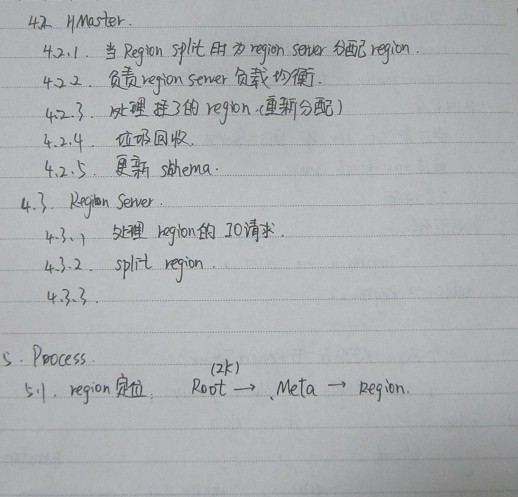 4.2 HMaster.
4.2.1. 当Region split时为region server 分配region.
4.2.2. 负责region server负载均衡.
4.2.3. 处理挂了的region.(重新分配)
4.2.4. 垃圾回收.
4.2.5. 更新 shhema.
4.3. Region Server.
4.3.1 处理 region的IO请求.
4.3.2. split region.
4.3.3.
5. Process.
(2k)
5.1. region定位. Root → .Meta → Region.